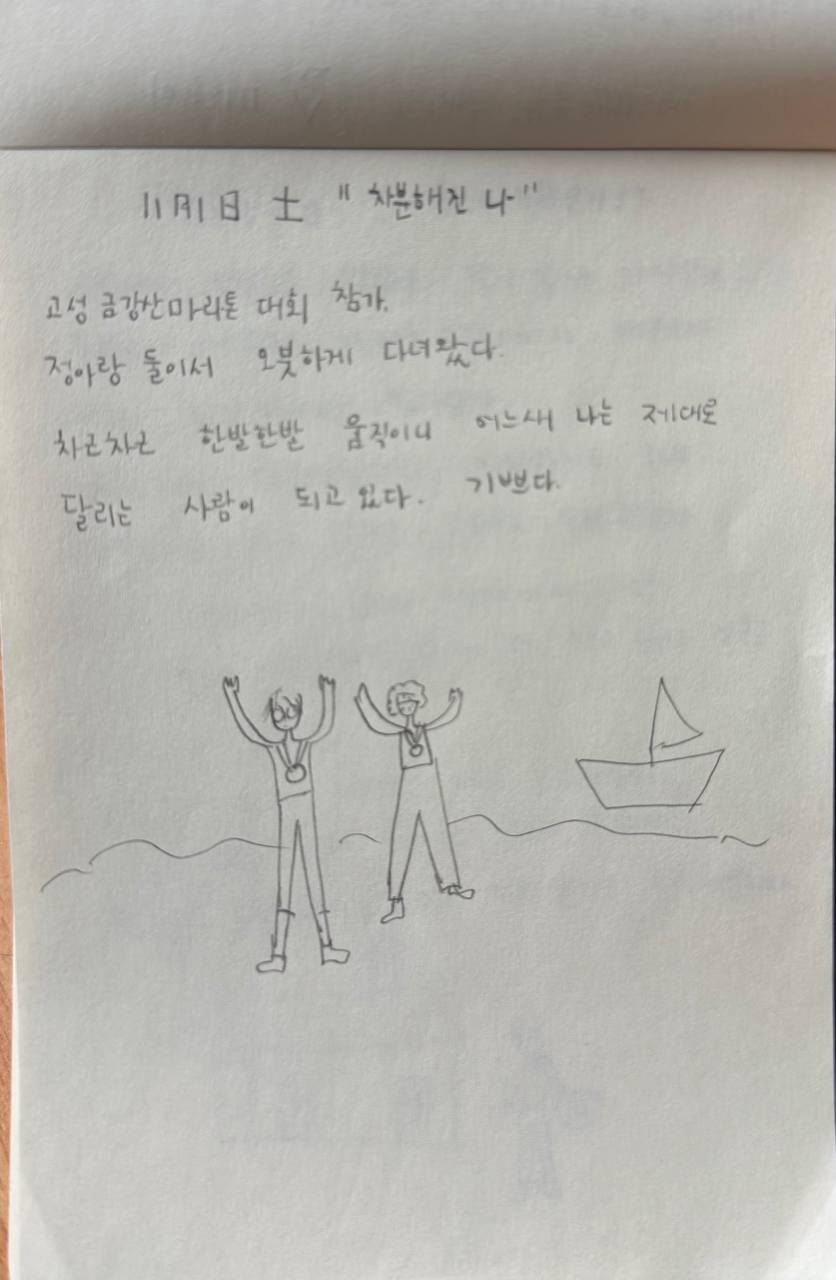 11月1日 土 "차분해진 나"
고성 금강산마라톤 대회 참가.
정아랑 둘이서 오붓하게 다녀왔다.
차근차근 한발한발 움직이니 어느새 나는 제대로
달리는 사람이 되고 있다. 기쁘다.